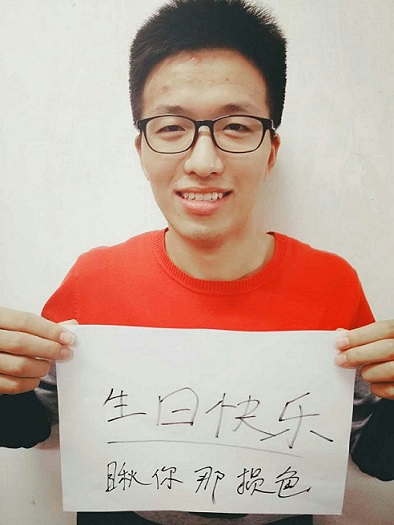 生日快乐
瞅你那损色